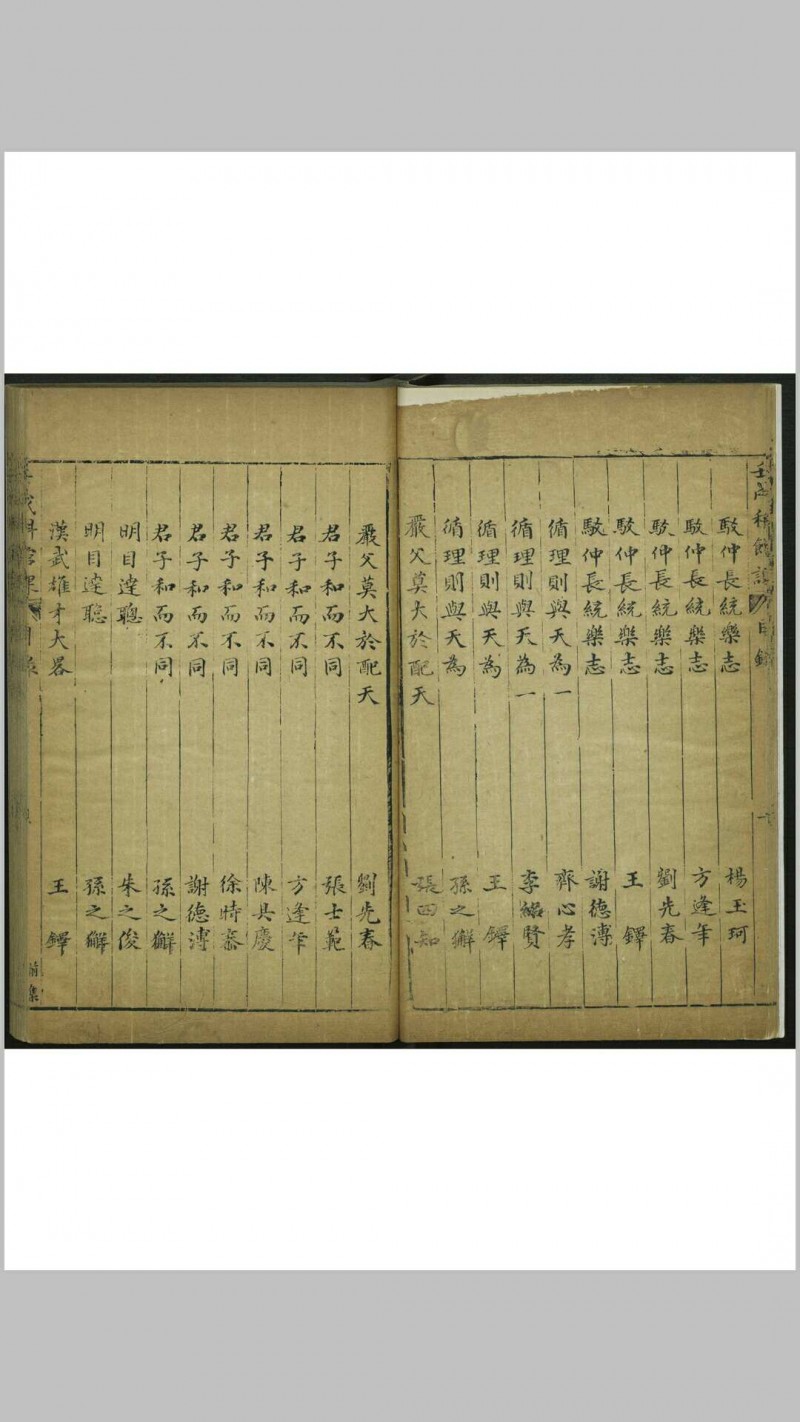 壬戌科館課 目錄 一
駁仲長統樂志 楊玉珂
駁仲長統樂志 方逢年
駁仲長統樂志 劉先春
駁仲長統樂志 王鐸
駁仲長統樂志 謝德溥
循理則與天為一 齊心孝
循理則與天為一 李紹賢
循理則與天為 王鐸
循理則與天為 孫之獬
嚴父莫大於配天 張四知
嚴父莫大於配天 劉先春
君子和而不同 張士範
君子和而不同 方逢年
君子和而不同 陳具慶
君子和而不同 徐時泰
君子和而不同 謝德溥
君子和而不同 孫之獬
明目達聰 朱之俊
明目達聰 孫之獬
漢武雄才大畧 王鐸